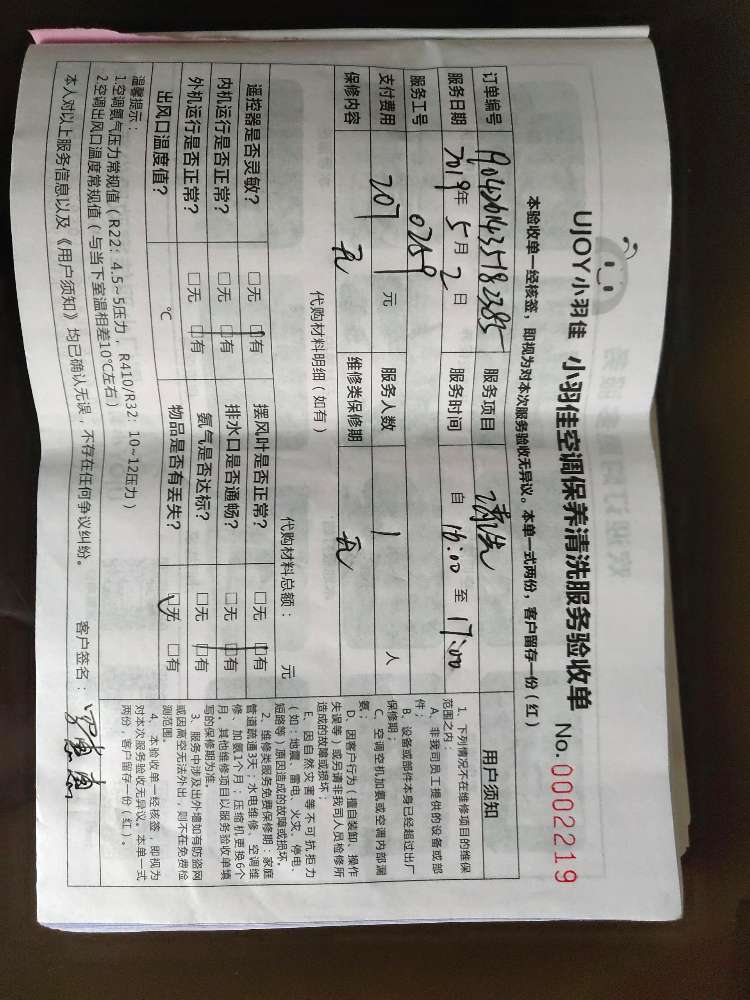 UJOY小羽佳 小羽佳空调保养清洗服务验收单 No.0002219
本验收单一经核签，即视为对本次服务验收无异议。本单一式两份，客户留存一份（红）
订单编号 服务项目 清洗
服务日期 2019年5月2日 服务时间 自 16:00 至 17:00
服务工号 0259
支付费用 207 元 服务人数 1 人
保修内容 无 维修类保修期 无
代购材料明细（如有） 代购材料总额： 元
遥控器是否灵敏？ □无 □有 摆风叶是否正常？ □无 □有
内机运行是否正常？ □无 □有 排水口是否通畅？ □无 □有
外机运行是否正常？ □无 □有 氨气是否达标？ □无 □有
出风口温度值？ ℃ 物品是否有丢失？ □无 □有
温馨提示：
1.空调氨气压力常规值（R22：4.5~5压力，R410/R32：10~12压力）
2.空调出风口温度常规值（与当下室温相差10℃左右）
本人对以上服务信息以及《用户须知》均已确认无误，不存在任何争议纠纷。 客户签名：
用户须知
1、下列情况不在维修项目的维保
范围之内：
A、非我司员工提供的设备或部
件；
B、设备或部件本身已经超过出厂
保修期；
C、空调空机加氨或空调内部漏
氨；
D、因客户行为（擅自装卸、操作
失误等）或另请非我司人员检修所
造成的故障或损坏；
E、因自然灾害等不可抗拒力
（如：地震、雷电、火灾、停电、
短路等）原因造成的故障或损坏。
2、维修类服务免费保修期：家庭
管道疏通3天；水电维修、空调维
修、加氨1个月；压缩机更换6个
月。其他维修项目以服务验收单填
写的保修期为准。
3、服务中涉及出外墙如有防盗网
或因高空无法外出，则不在免费检
测范围。
4、本验收单一经核签，即视为
对本次服务验收无异议。本单一式
两份，客户留存一份（红）。